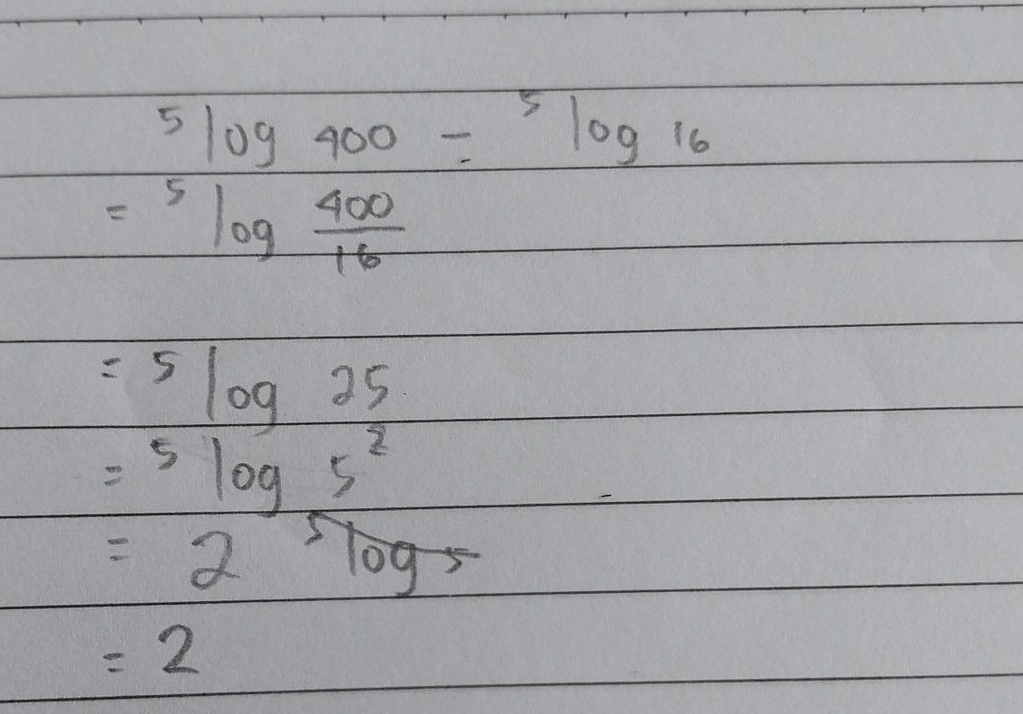 ⁵log 400 - ⁵log 16
= ⁵log 400/16
= ⁵log 25
= ⁵log 5²
= 2 ⁵log 5
= 2